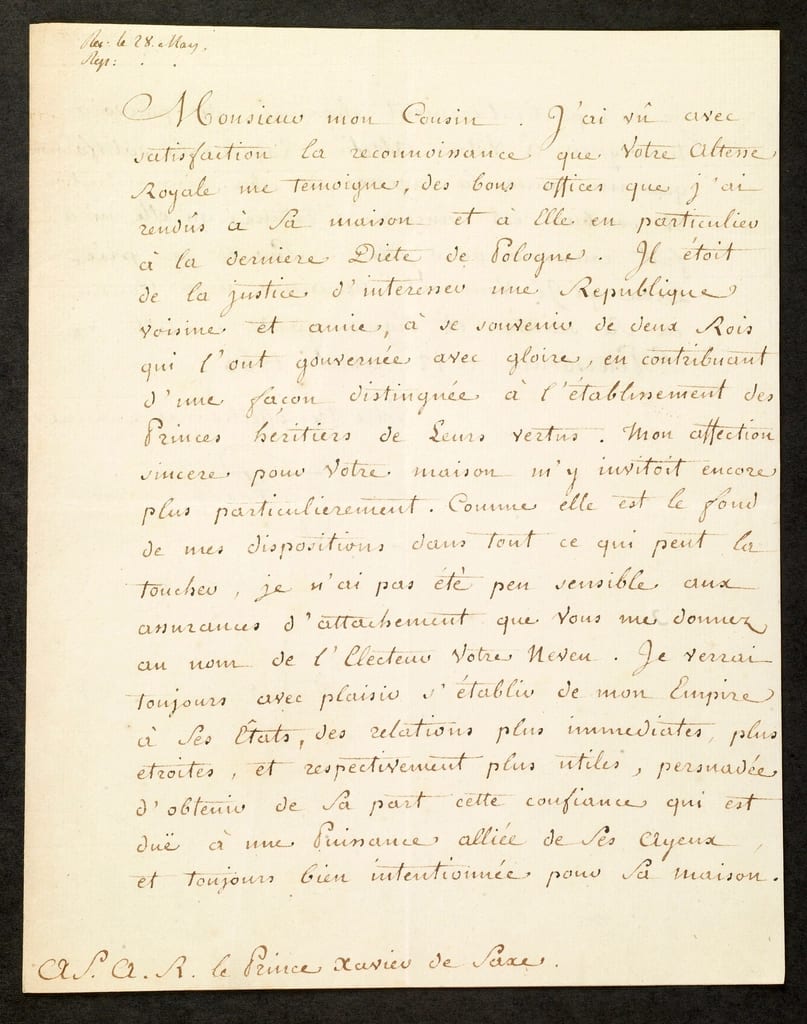 Rec: le 28. May.
Rep: . .
Monsieur mon Cousin. J'ai vû avec
satisfaction la reconnoissance que Votre Altesse
Royale me temoigne, des bons offices que j'ai
rendûs à Sa maison et à Elle en particulier
à la derniere Diéte de Pologne. Il étoit
de la justice d'interesser une Republique
voisine et amie, à se souvenir de deux Rois
qui l'ont gouvernée avec gloire, en contribuant
d'une façon distinguée à l'établissement des
Princes héritiers de Leurs vertus. Mon affection
sincere pour Votre maison m'y invitoit encore
plus particulierement. Comme elle est le fond
de mes dispositions dans tout ce qui peut la
toucher, je n'ai pas été peu sensible aux
assurances d'attachement que Vous me donnez
au nom de l'Electeur Votre Neveu. Je verrai
toujours avec plaisir s'établir de mon Empire
à Ses Êtats, des relations plus immediates, plus
etroites, et respectivement plus utiles, persuadée
d'obtenir de Sa part cette confiance qui est
duë à une Puissance alliée de Ses Ayeux,
et toujours bien intentionnée pour Sa maison.
A S. A. R. le Prince Xavier de Saxe.